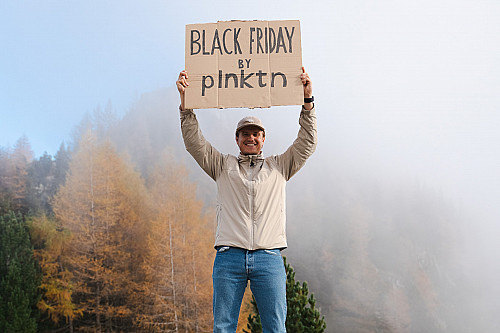 BLACK FRIDAY
BY
plnktn